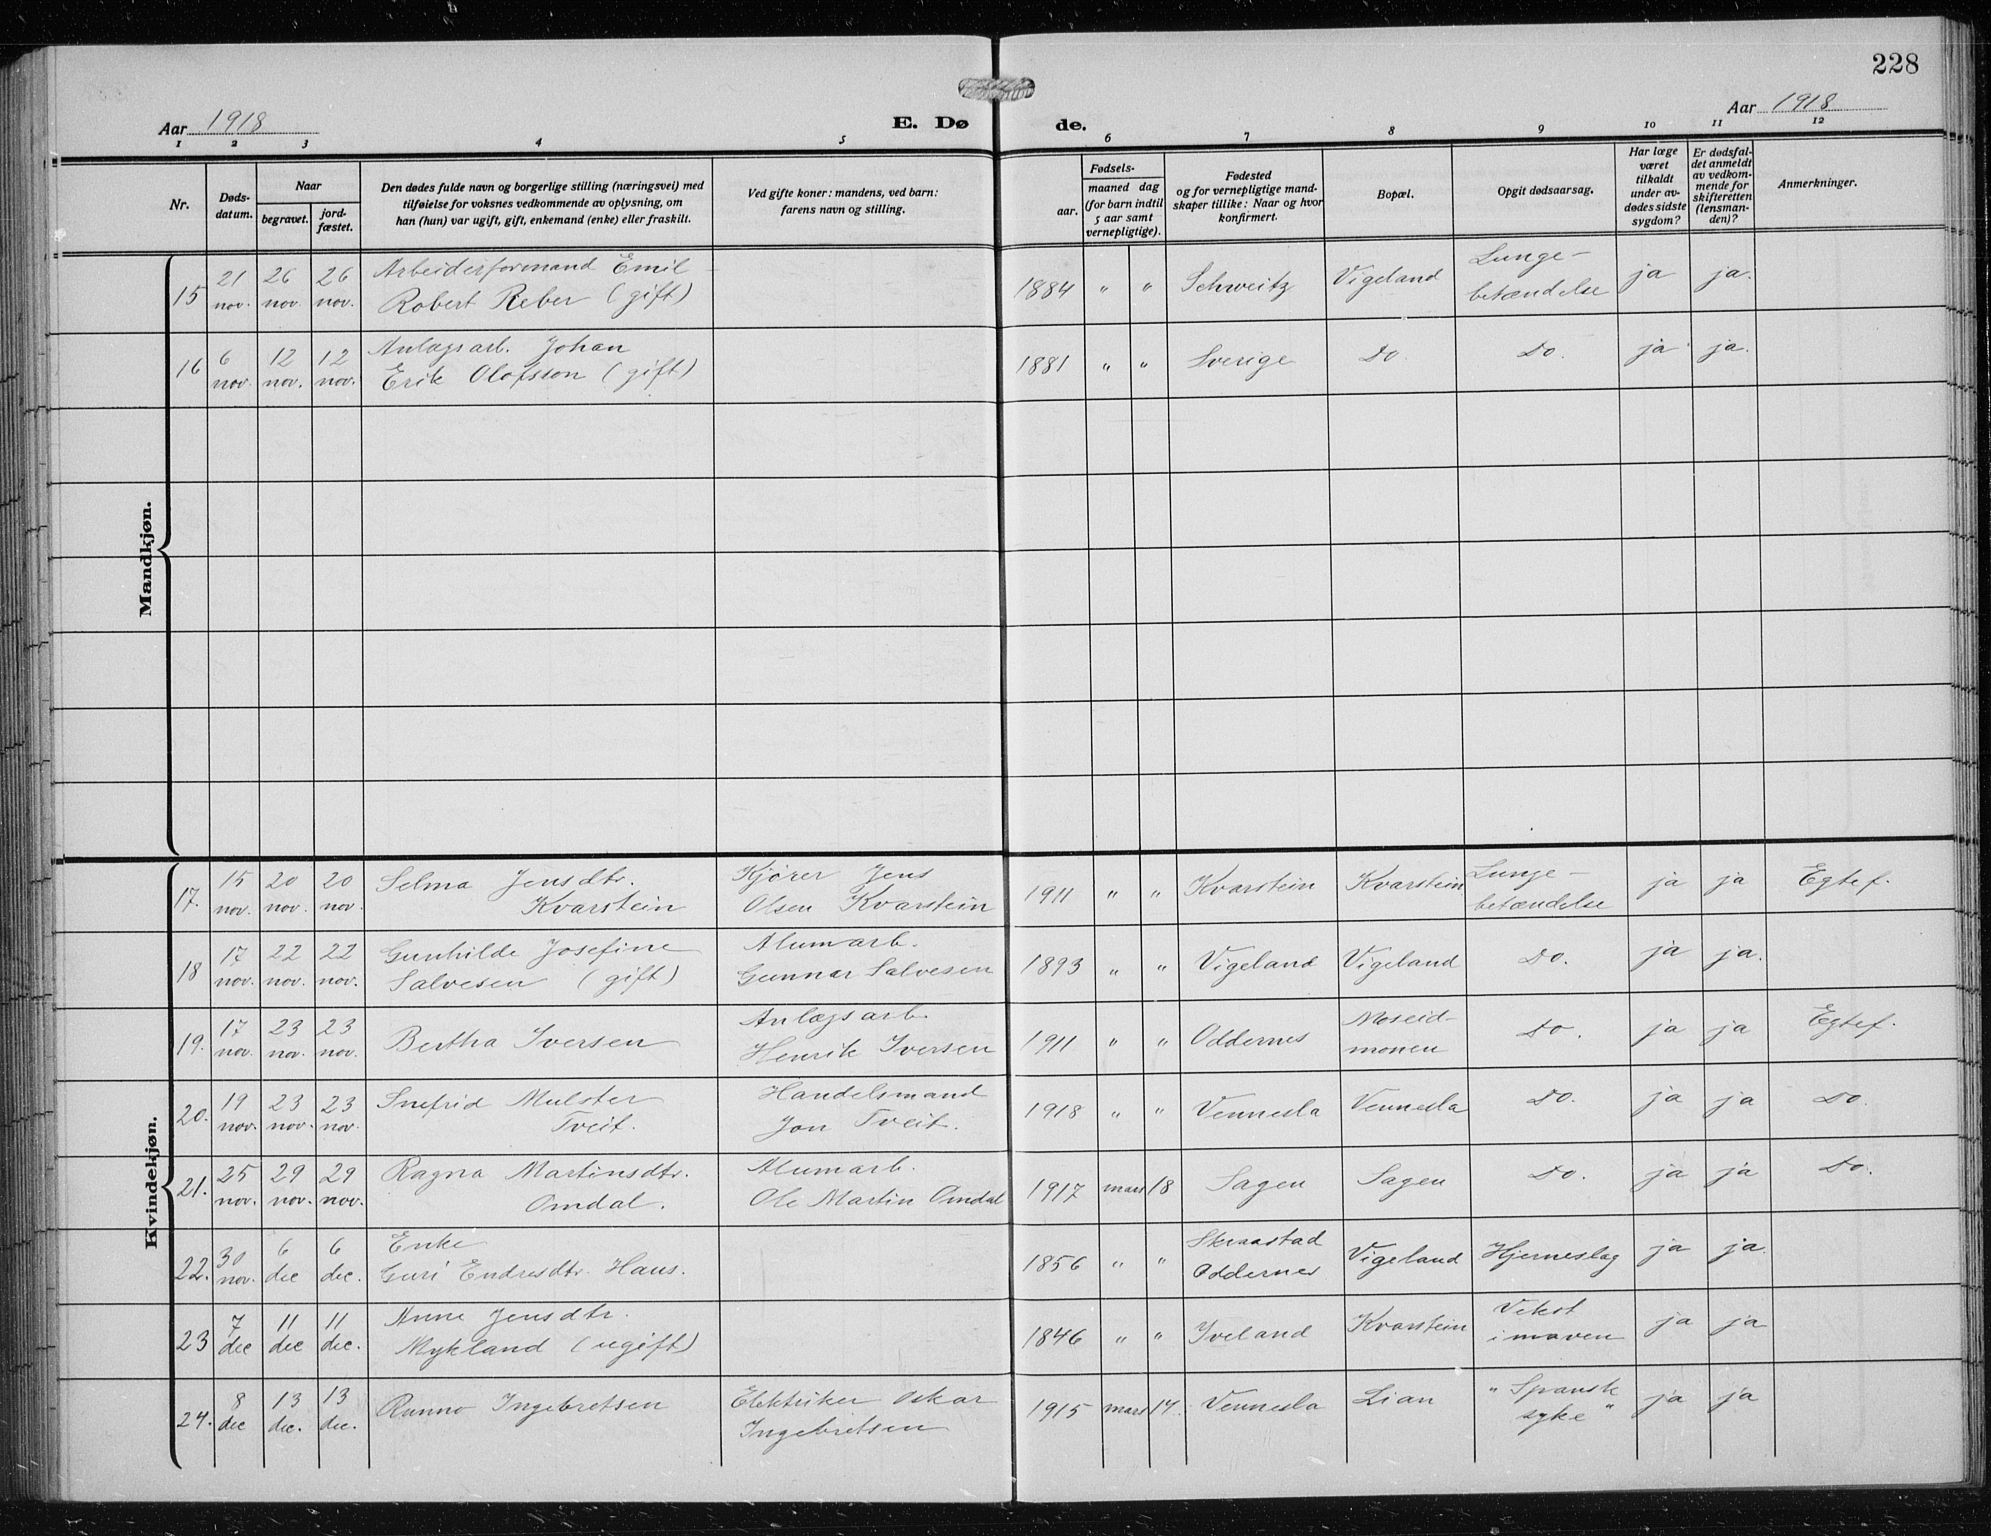 228
Aar 1918
E. Dø
de.
Aar 1918
1 2 3 4 5 6 7 8 9 10 11 12
Nr.
Døds-
datum.
Naar
begravet.
jord-
fæstet.
Den dødes fulde navn og borgerlige stilling (næringsvei) med
tilføielse for voksnes vedkommende av oplysning, om
han (hun) var ugift, gift, enkemand (enke) eller fraskilt.
Ved gifte koner: mandens, ved barn:
farens navn og stilling.
Fødsels-
aar.
maaned dag
(for barn indtil
5 aar samt
vernepligtige).
Fødested
og for vernepligtige mand-
skaper tillike: Naar og hvor
konfirmert.
Bopæl.
Opgit dødsaarsag.
Har læge
været
tilkaldt
under av-
dødes sidste
sygdom?
Er dødsfal-
det anmeldt
av vedkom-
mende for
skifteretten
(lensman-
den)?
Anmerkninger.
Mandkjøn.
21 26 26 Arbeiderformand Emil Lunge-
15 nov. nov. nov. Robert Reber (gift) 1884 " " Schweitz Vigeland betændelse ja ja.
6 12 12 Anlægsarb. Johan
16 nov. nov. nov. Erik Olofsson (gift) 1881 " " Sverige Do. Do. ja ja.
Kvindekjøn.
15 20 20 Selma Jensdtr. Kjører Jens Lunge-
17. nov. nov. nov. Kvarstein Olsen Kvarstein 1911 " " Kvarstein Kvarstein betændelse ja ja Egtef.
17 22 22 Gunhilde Josefine Alumarb.
18 nov. nov. nov. Salvesen (gift) Gunnar Salvesen 1893 " " Vigeland Vigeland Do. ja ja.
17 23 23 Anlægsarb. Moseid-
19. nov. nov. nov. Bertha Iversen Henrik Iversen 1911 " " Oddernes monen Do. ja ja Egtef.
19 23 23 Snefrid Mulster Handelsmand
20. nov. nov. nov. Tveit. Jon Tveit. 1918 " " Vennesla Vennesla Do. ja ja Do.
25 29 29 Ragna Martinsdtr. Alumarb.
21. nov. nov. nov. Omdal. Ole Martin Omdal 1917 mars 18 Sagen Sagen Do. ja ja Do.
30 6 6 Enke Skraastad
22. nov. dec dec. Guri Endresdtr. Haus. 1856 " " Oddernes Vigeland Hjerneslag ja ja.
7 11 11 Anne Jensdtr. Vekst
23 dec dec dec. Mykland (ugift) 1846 " " Iveland Kvarstein i maven ja ja
8 13 13 Elektriker Oskar " Spansk
24. dec dec. dec. Runno Ingebretsen Ingebretsen 1915 mars 14. Vennesla Lian syke " ja ja